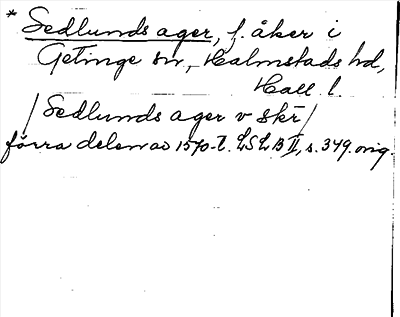 * Sedlunds ager, f. åker i
Getinge sn, Halmstads hd,
Hall. l.
/Sedlunds ager v skr/
förra delen av 1570-t. LSLB II, s. 349. orig.